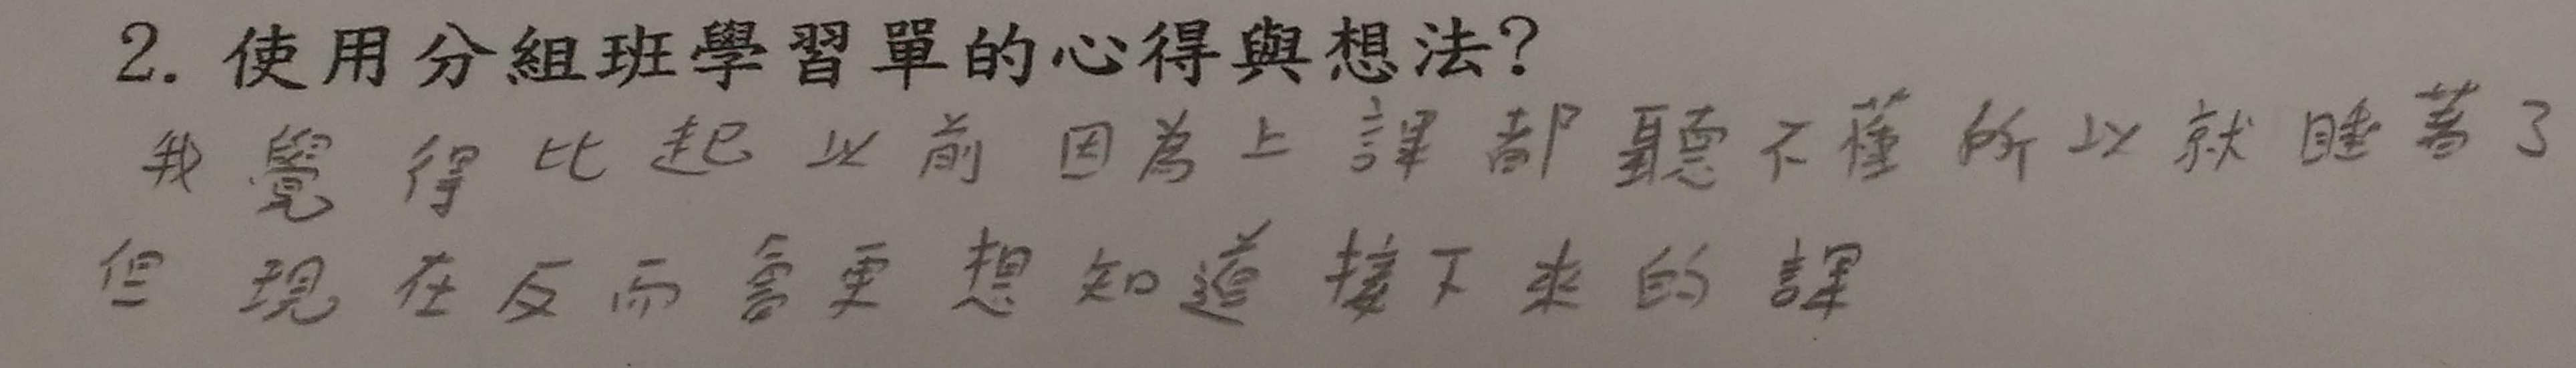 2. 使用分組班學習單的心得與想法?
我覺得比起以前因為上課都聽不懂所以就睡著了
但現在反而會更想知道接下來的課